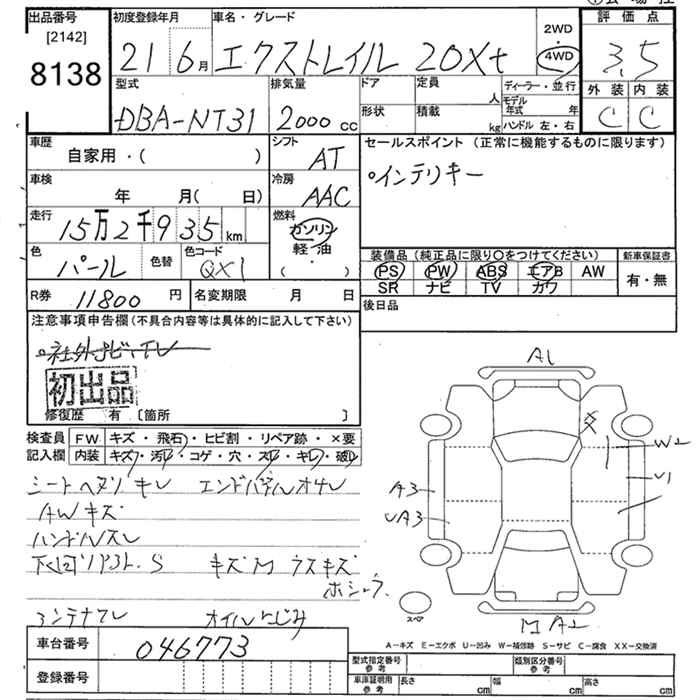 出品番号 初度登録年月 車名・グレード 2WD 評価点
[2142] 21 6月 エクストレイル 20Xt 4WD 3.5
8138 型式 排気量 ドア 定員 人 ディーラー・並行 外装 内装
DBA-NT31 2000cc 形状 積載 kg モデル年式 年 ハンドル 左・右 C C
車歴 自家用・( ) シフト AT セールスポイント (正常に機能するものに限ります)
車検 年 月( 日) 冷房 AAC ○インテリキー
走行 15万2千935km 燃料 ガソリン 軽・油 ( ・ )
色 パール 色替 色コード QX1 装備品 (純正品に限り○をつけてください) 新車保証書
PS PW ABS エアB AW 有・無
R券 11800円 名変期限 月 日 SR ナビ TV カワ
後日品
注意事項申告欄 (不具合内容等は具体的に記入して下さい)
○社外ナビ・TV
初出品
修復歴 有 [箇所 ]
検査員 FW キズ・飛石・ヒビ割・リペア跡・×要
記入欄 内装 キズ・汚レ・コゲ・穴・スレ・キレ・破レ
シートヘタリ キレ エンドパネルオサレ
AWキズ
ハンドルスレ
下回り S キズ M ウスキズ
アンテナナシ オイルにじみ
A1
W2
U1
A3
UA3
M A2
スペア
A-キズ E-エクボ U-凹み W-補修跡 S-サビ C-腐食 XX-交換済
車台番号 046773
型式指定番号 参考 類別区分番号 参考
登録番号 車庫証明用 参考 長さ cm 幅 cm 高さ cm